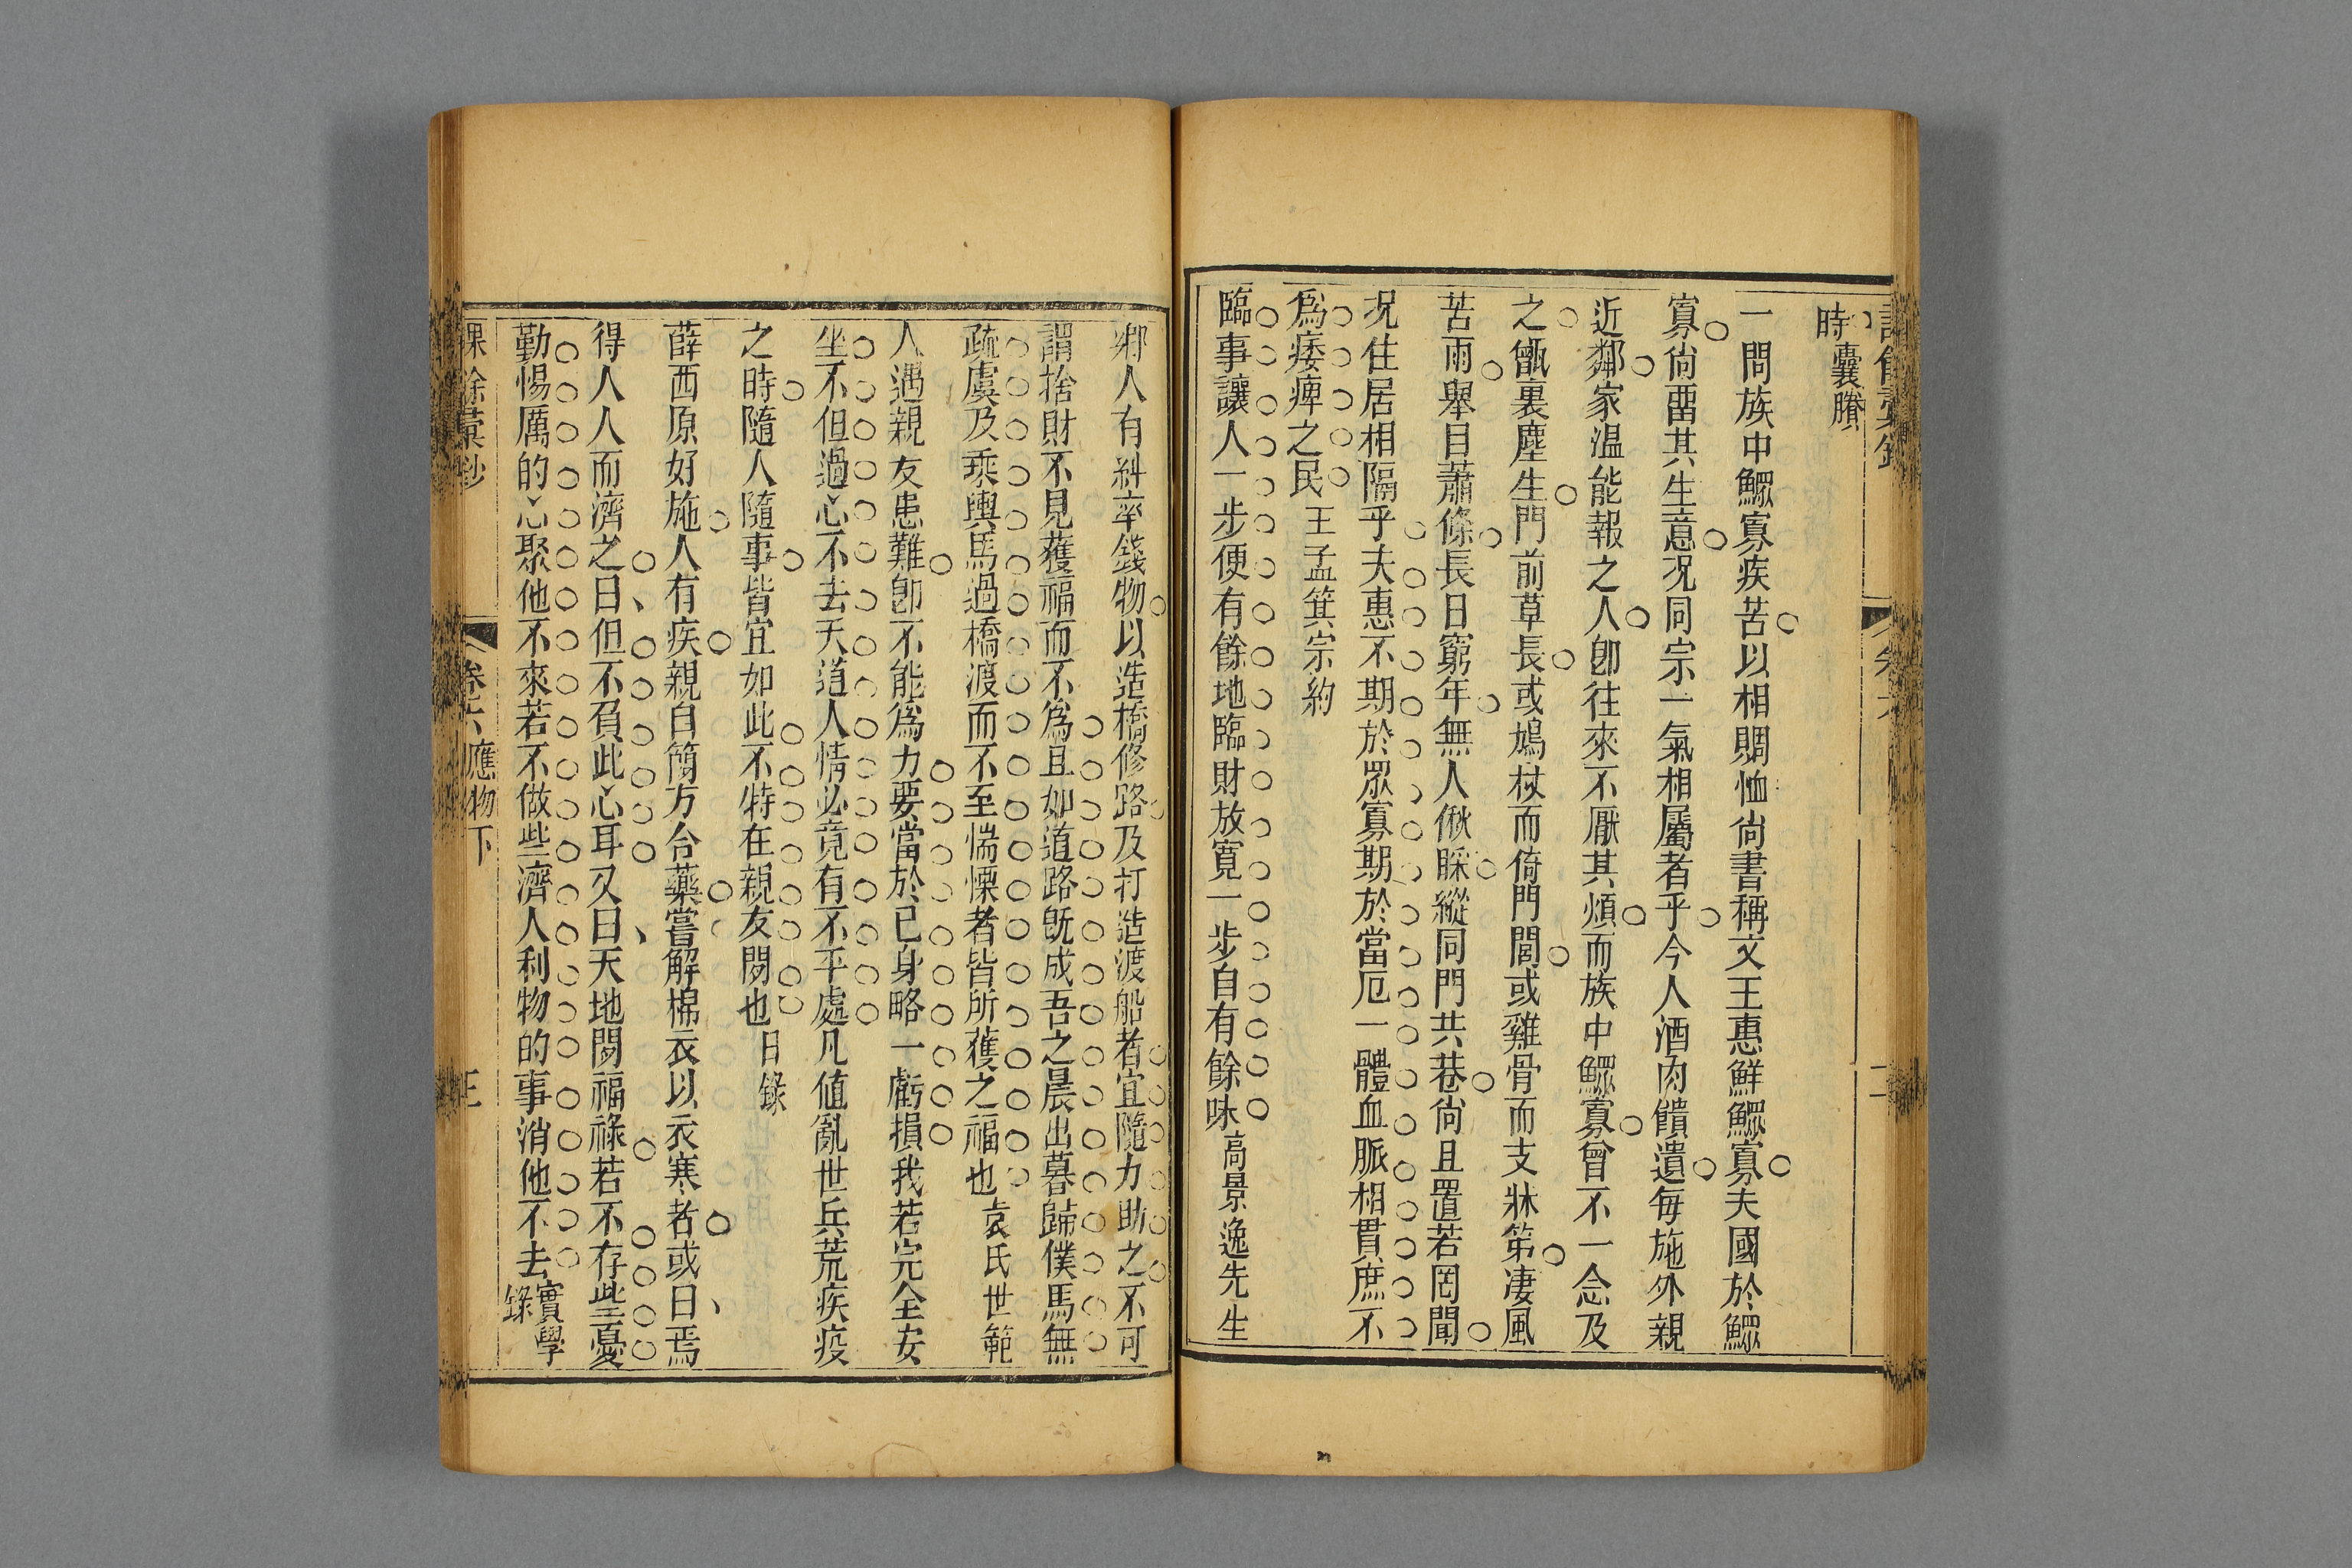 課餘彙鈔
卷六
二
時 囊賸
一問族中鰥寡疾苦以相賙恤尙書稱文王惠鮮鰥寡夫國於鰥
寡尙畱其生意況同宗一氣相屬者乎今人酒肉饋遺每施外親
近鄰家温能報之人卽往來不厭其煩而族中鰥寡曾不一念及
之甑裏塵生門前草長或鳩杖而倚門閭或雞骨而支牀笫凄風
苦雨舉目蕭條長日窮年無人偢睬縱同門共巷尙且置若罔聞
況住居相隔乎夫惠不期於眾寡期於當厄一體血脈相貫庶不
爲痿痺之民 王孟箕宗約
臨事讓人一步便有餘地臨財放寬一步自有餘味 高景逸先生
鄉人有糾率錢物以造橋修路及打造渡船者宜隨力助之不可
謂捨財不見獲福而不爲且如道路旣成吾之晨出暮歸僕馬無
疏虞及乘輿馬過橋渡而不至惴慄者皆所獲之福也 袁氏世範
人遇親友患難卽不能爲力要當於己身略一虧損我若完全安
坐不但過心不去天道人情必竟有不平處凡値亂世兵荒疾疫
之時隨人隨事皆宜如此不特在親友閒也 日錄
薛西原好施人有疾親自簡方合藥嘗解棉衣以衣寒者或曰焉
得人人而濟之曰但不負此心耳又曰天地閒福祿若不存些憂
勤惕厲的心聚他不來若不做些濟人利物的事消他不去 實學錄
課餘彙鈔
卷六 應物下
三